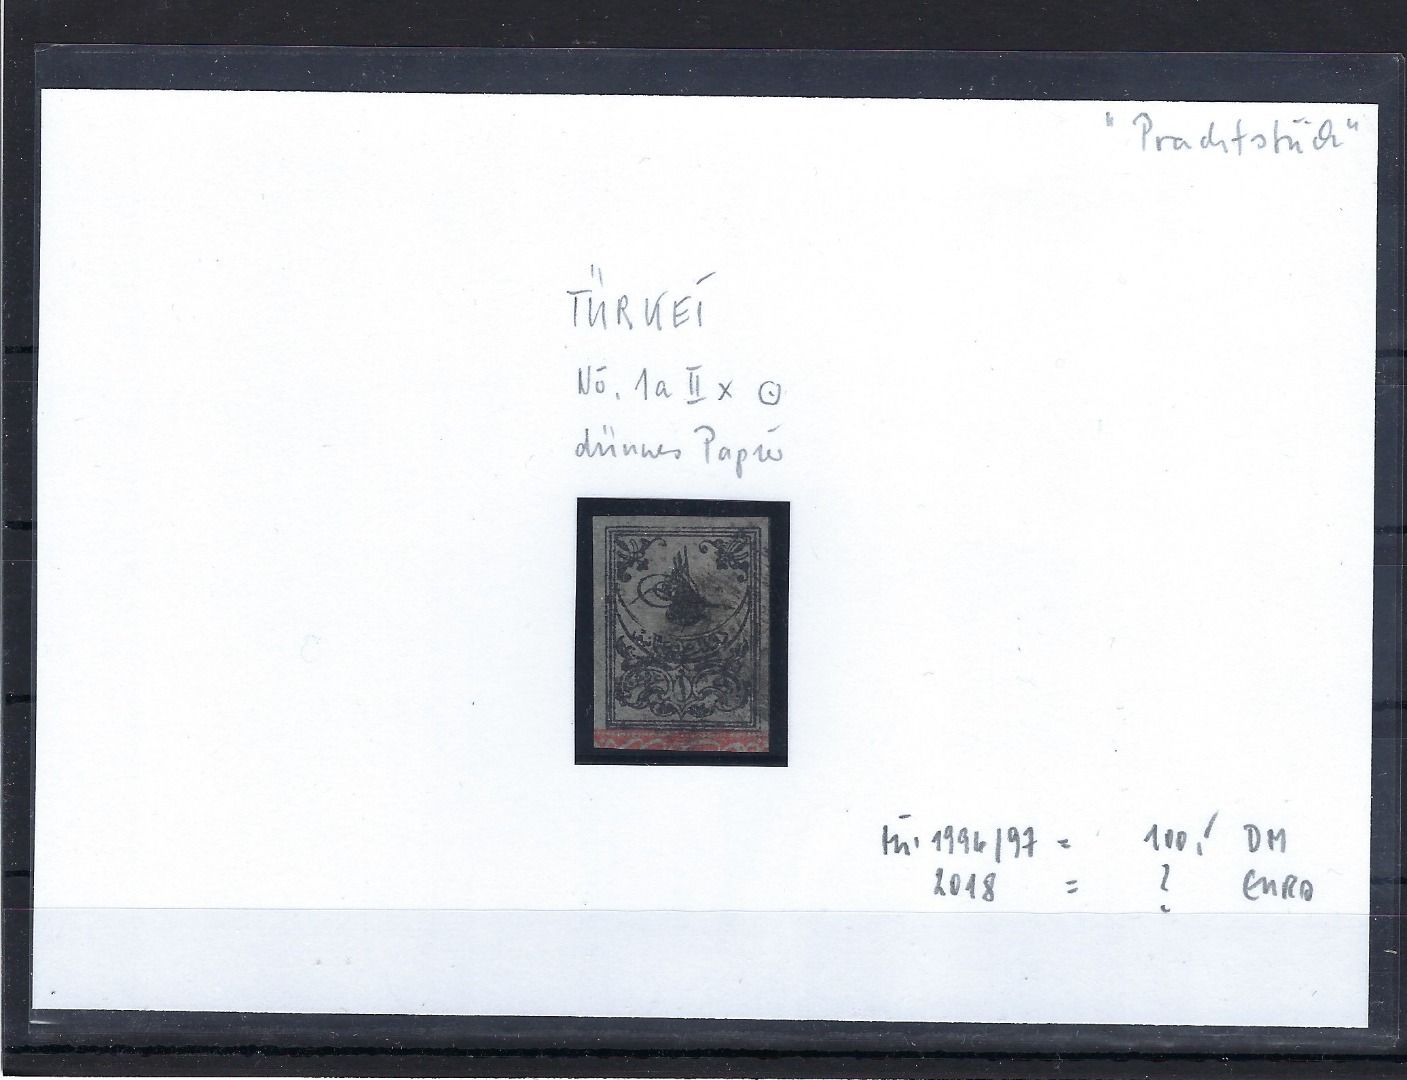 "Prachtstück"
TÜRKEI
No. 1a II x ⊙
dünnes Papier
Mi. 1996/97 = 100,- DM
2018 = ? EURO